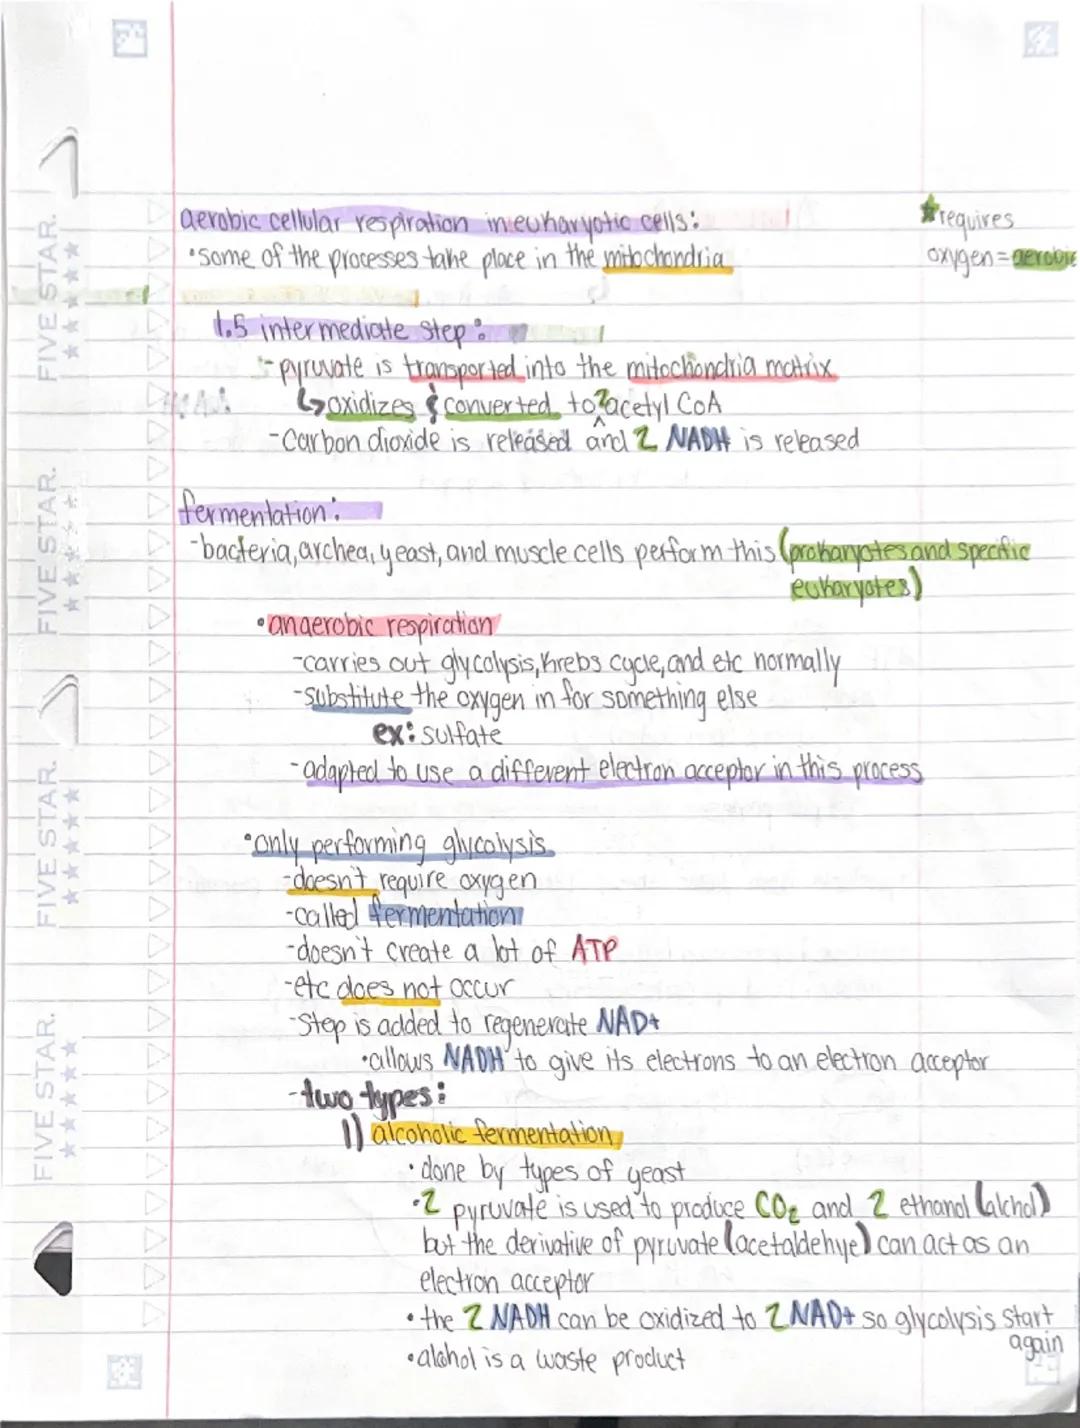 aerobic cellular respiration in eukaryotic cells:
•some of the processes take place in the mitochondria
★requires
oxygen=aerobic
1.5 intermediate step:
-pyruvate is transported into the mitochondria matrix
↳oxidizes & converted to 2 acetyl CoA
-Carbon dioxide is released and 2 NADH is released
fermentation:
-bacteria, archea, yeast, and muscle cells perform this (prokaryotes and specific
eukaryotes)
•anaerobic respiration
-carries out glycolysis, krebs cycle, and etc normally
-substitute the oxygen in for something else
ex: sulfate
-adapted to use a different electron acceptor in this process
•only performing glycolysis
-doesn't require oxygen
-called fermentation
-doesn't create a lot of ATP
-etc does not occur
-Step is added to regenerate NAD+
•allows NADH to give its electrons to an electron acceptor
-two types:
1) alcoholic fermentation
•done by types of yeast
•2 pyruvate is used to produce CO₂ and 2 ethanol (alchol)
but the derivative of pyruvate (acetaldehye) can act as an
electron acceptor
•the 2 NADH can be oxidized to 2 NAD+ so glycolysis start
again
•alohol is a waste product
FIVE STAR.
FIVE STAR.
FIVE STAR.
FIVE STAR.